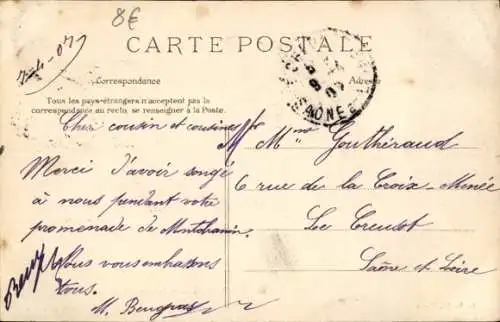 8€
CARTE POSTALE
Correspondance
Adresse
Tous les pays étrangers n'acceptent pas la
correspondance au recto, se renseigner à la Poste.
Cher cousin et cousine
Merci d'avoir songé
à nous pendant votre
promenade de Montchanin.
Nous vous embrassons
tous.
Mr Mme Gouthéraud
6 rue de la Croix-Menée
Le Creusot
Saône et Loire